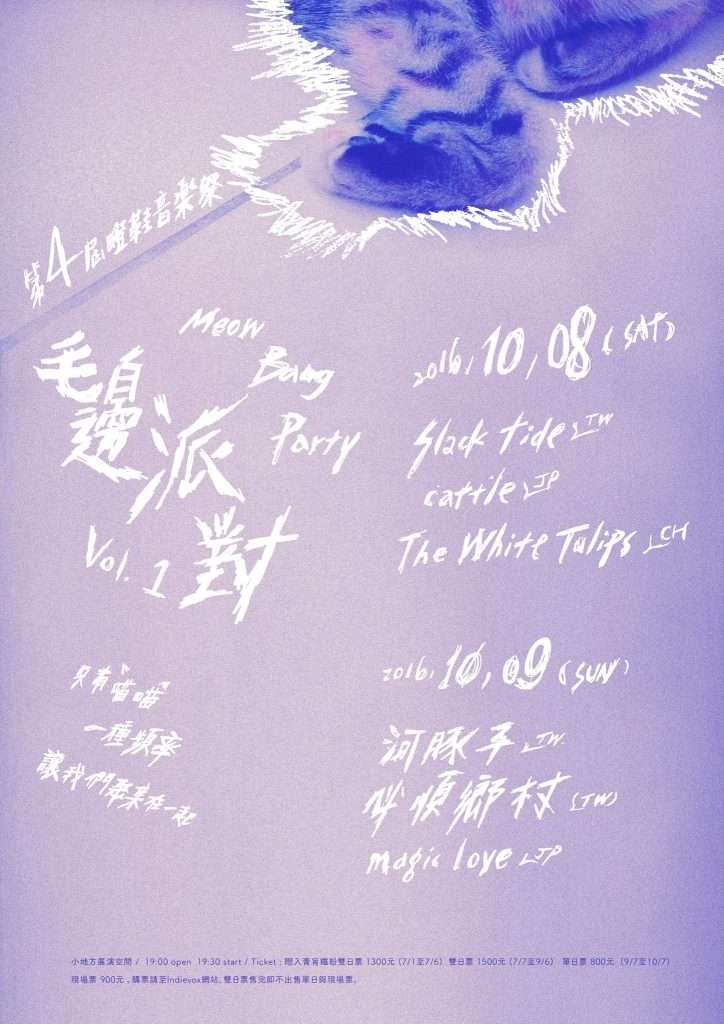 第4屆瞪鞋音樂祭
Meow
Bang
Party
毛邊派對
Vol. 1
只有"喵喵"
一種頻率
讓我們聚集在一起
2016. 10, 08 (SAT)
Slack Tide (TW
cattle (JP
The White Tulips (CH
2016. 10, 09 (SUN)
河豚子 (TW.
順鄉村 (TW)
magic love (JP
小地方展演空間 / 19:00 open 19:30 start / Ticket : 瞪入膏肓鐵粉雙日票 1300元 (7/1至7/6) 雙日票 1500元 (7/7至9/6) 單日票 800元 (9/7至10/7)
現場票 900元。購票請至Indievox網站, 雙日票售完即不出售單日與現場票。